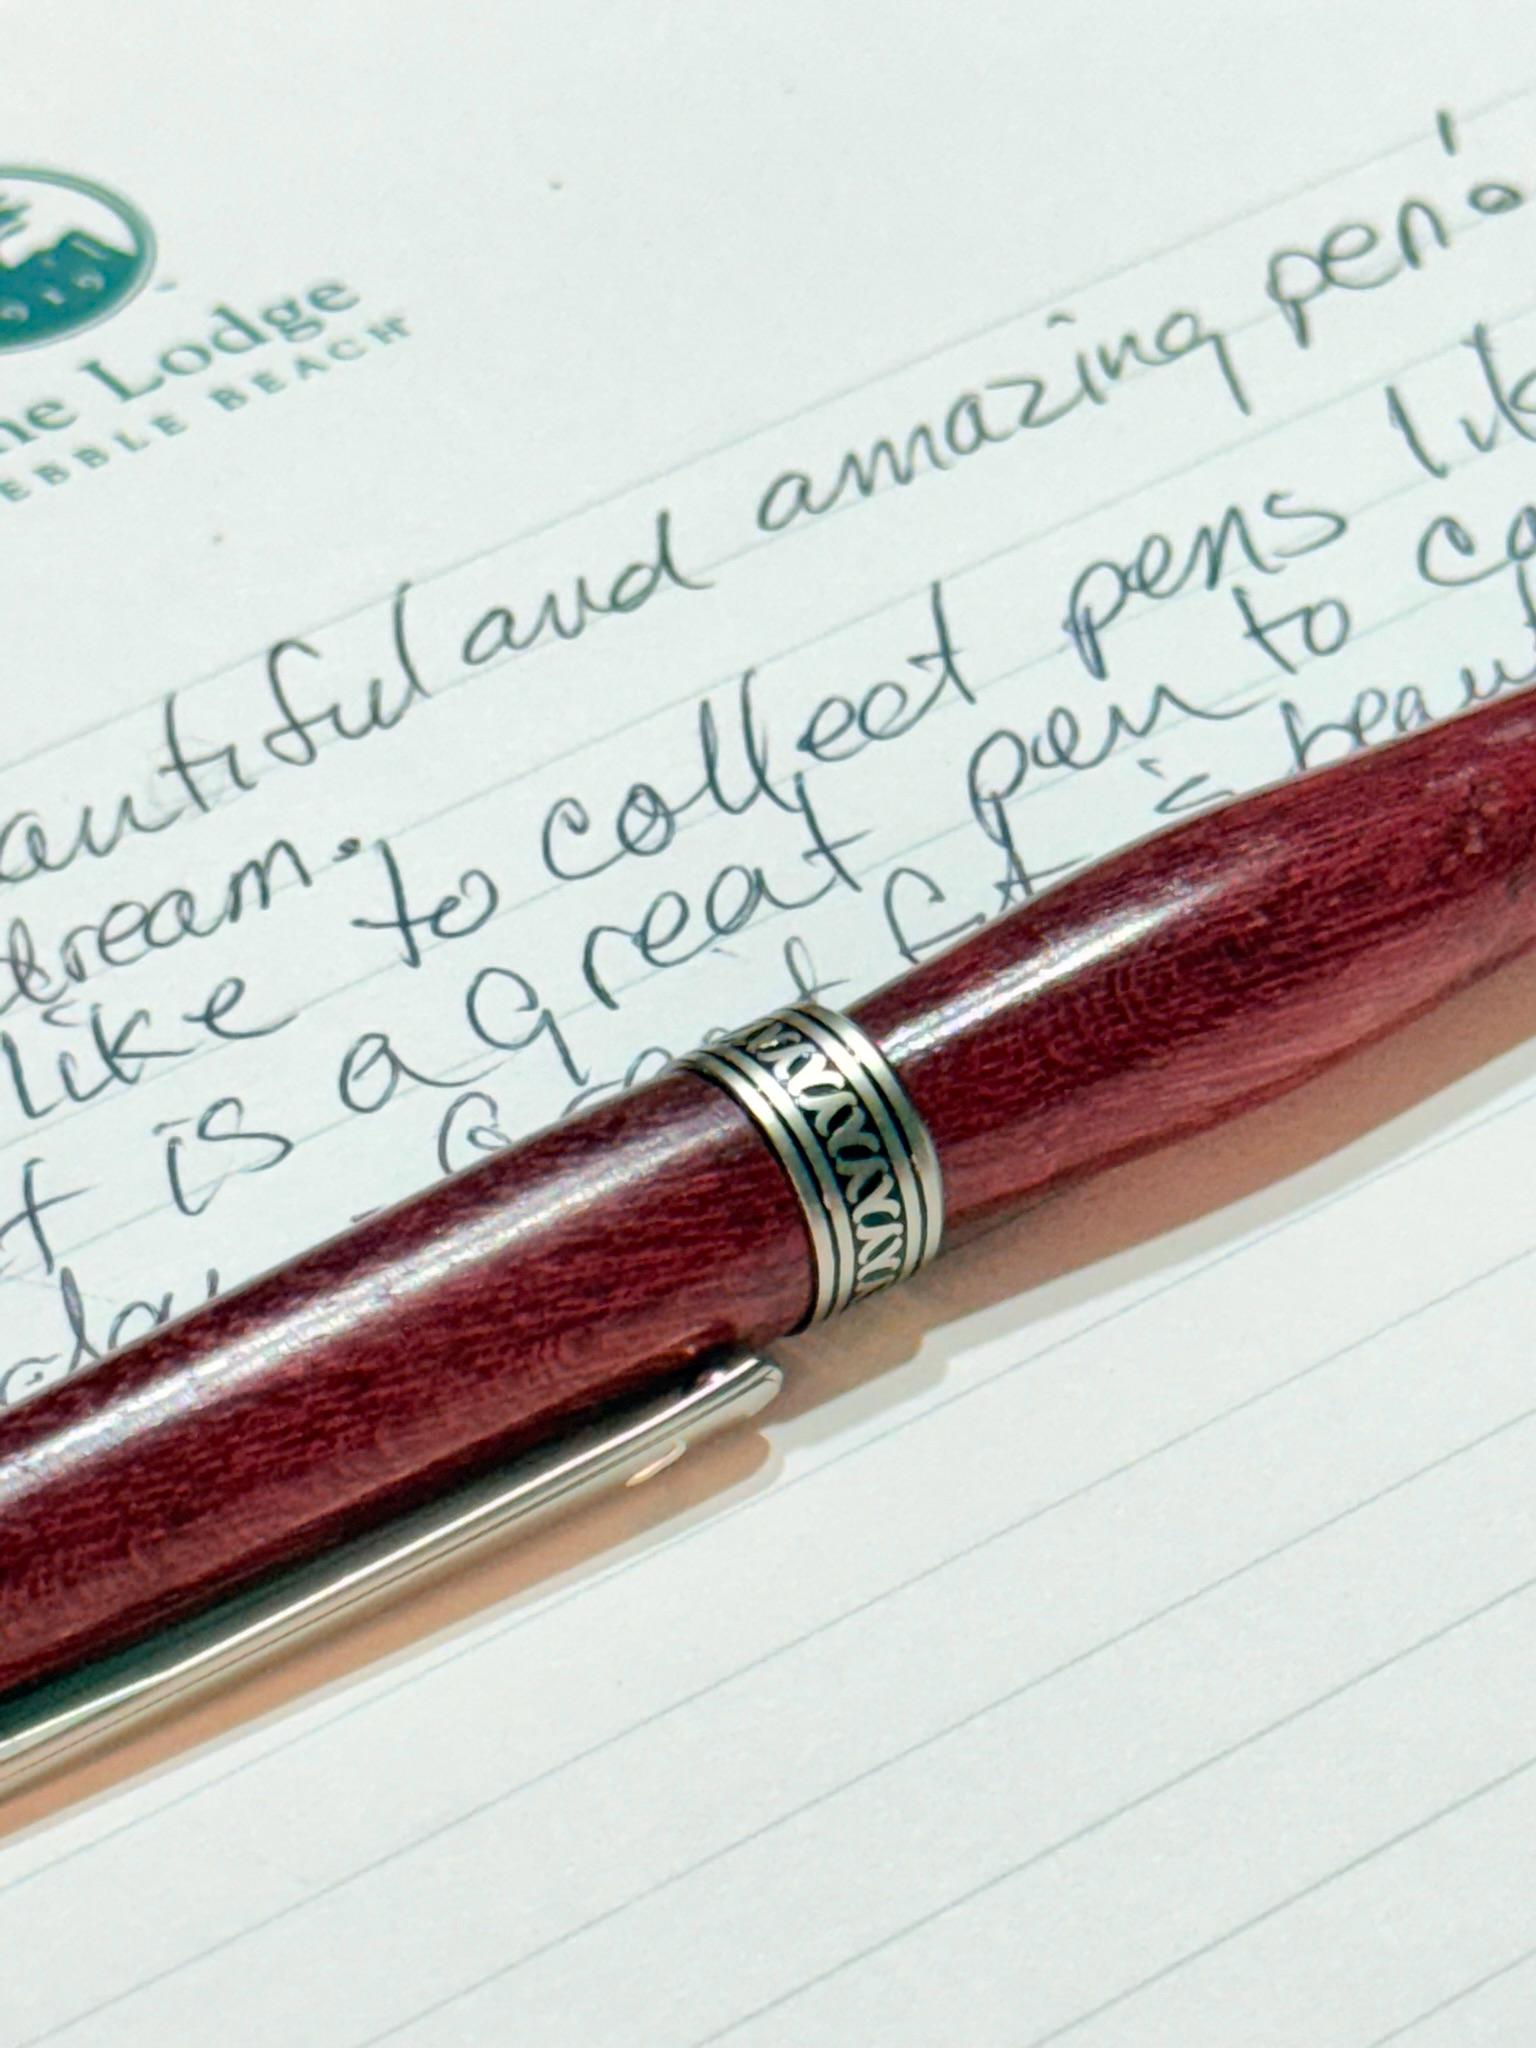 1919
he Lodge
EBBLE BEACH
autiful and amazing pen!
tream.
like to collect pens lik
t is a great pen to ca
is beaut